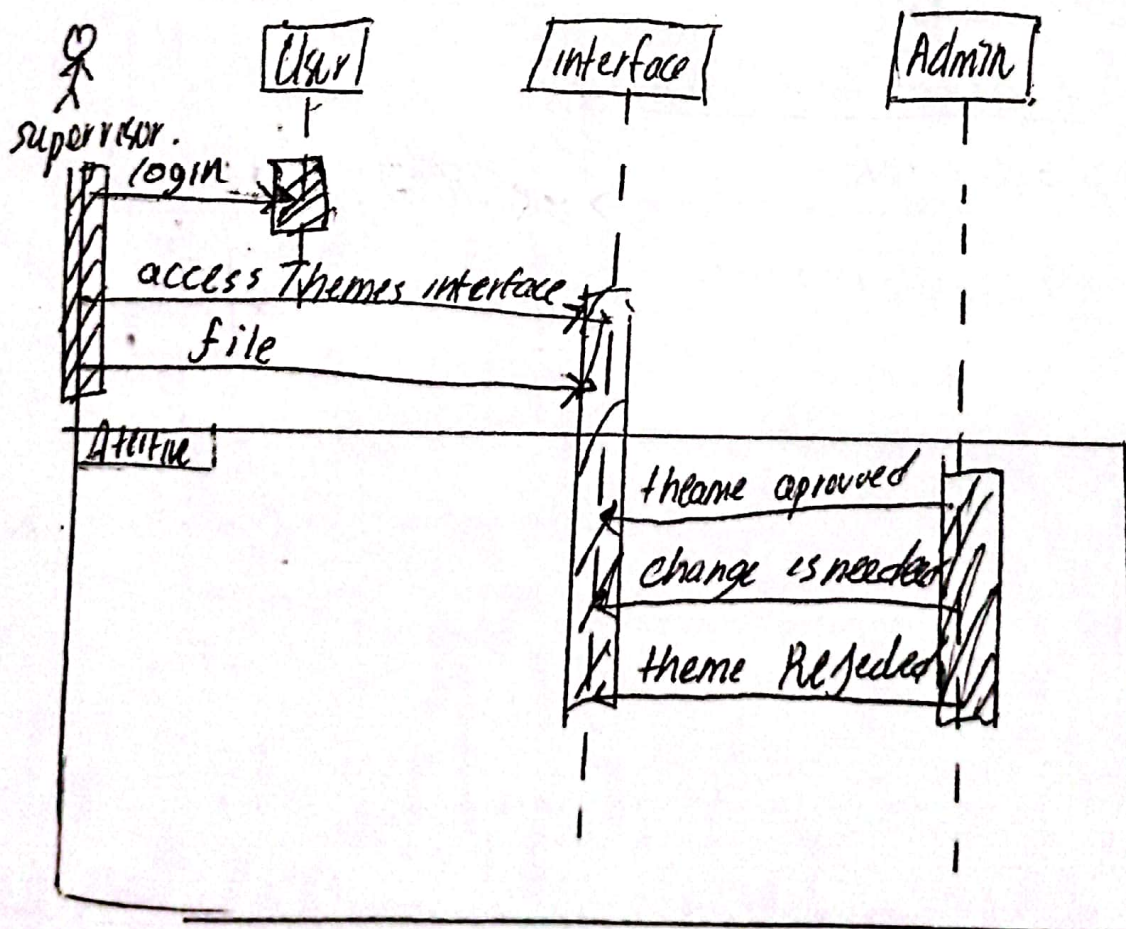 User
interface
Admin
supervisor.
login
access Themes interface
file
theame aprouved
change is needed
theme Rejected